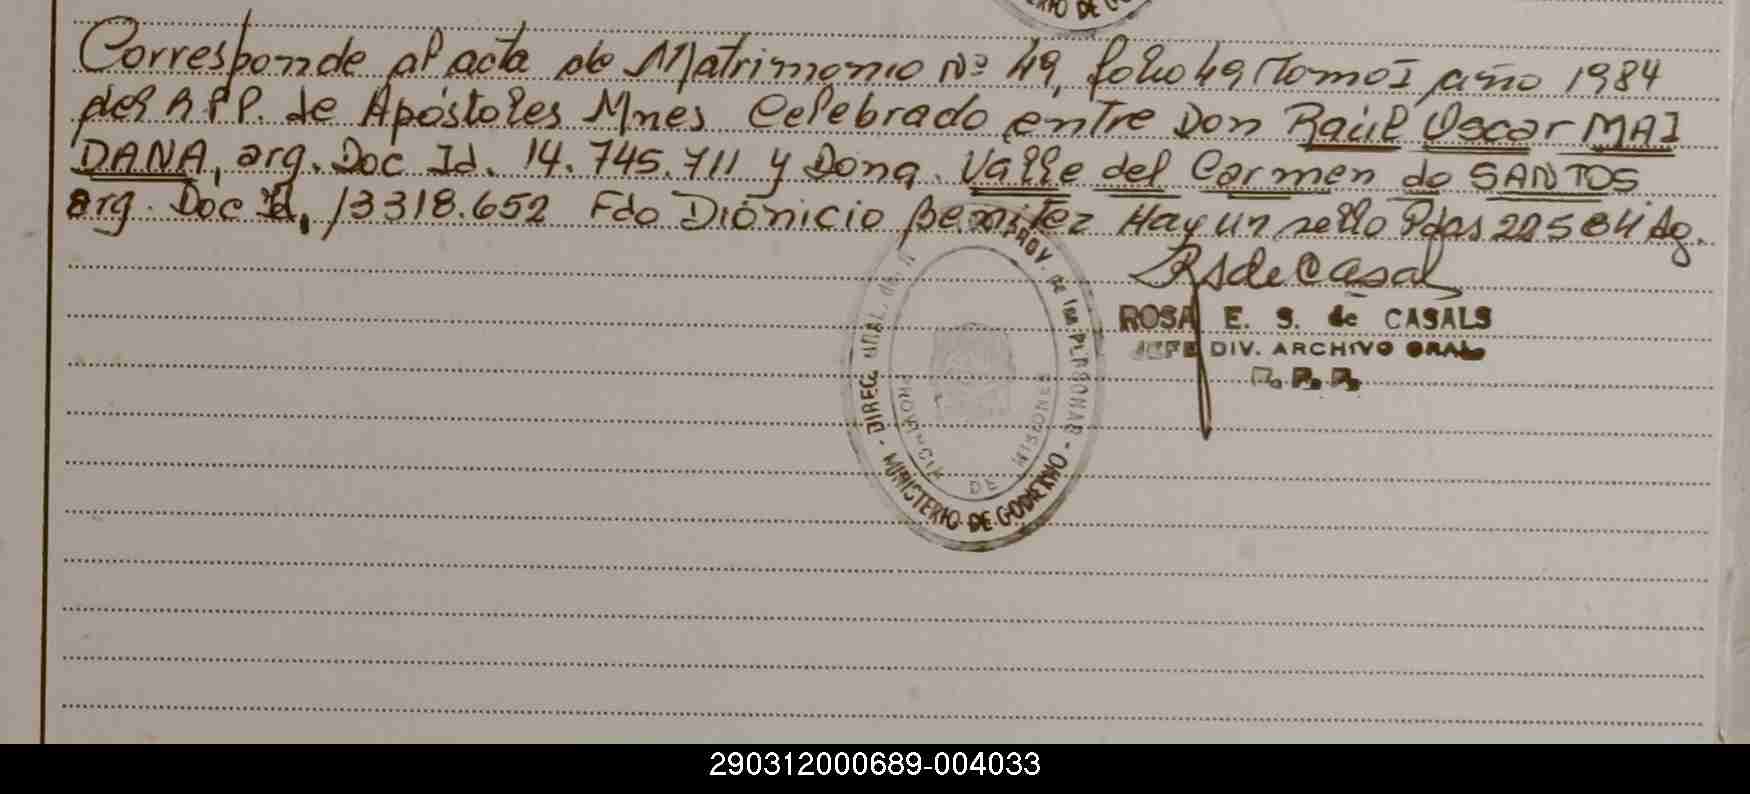 Corresponde al acta de Matrimonio Nº 49, folio 49 Tomo I año 1984
del R.P.P. de Apóstoles Mnes Celebrado entre Don Raúl Oscar MAI
DANA, arg. Doc Id. 14.745.711 y Dona. Valle del Carmen do SANTOS
arg. Doc Id, 13318.652 Fdo Dionicio Benitez Hay un sello Pdas 22584 Ag.
RSdeCasal
ROSA E. S. de CASALS
JEFE DIV. ARCHIVO GRAL
R.P.P.
DIREC. GRAL. DEL PROV. de las PERSONAS - MINISTERIO DE GOBIERNO -
PROVINCIA DE MISIONES
290312000689-004033